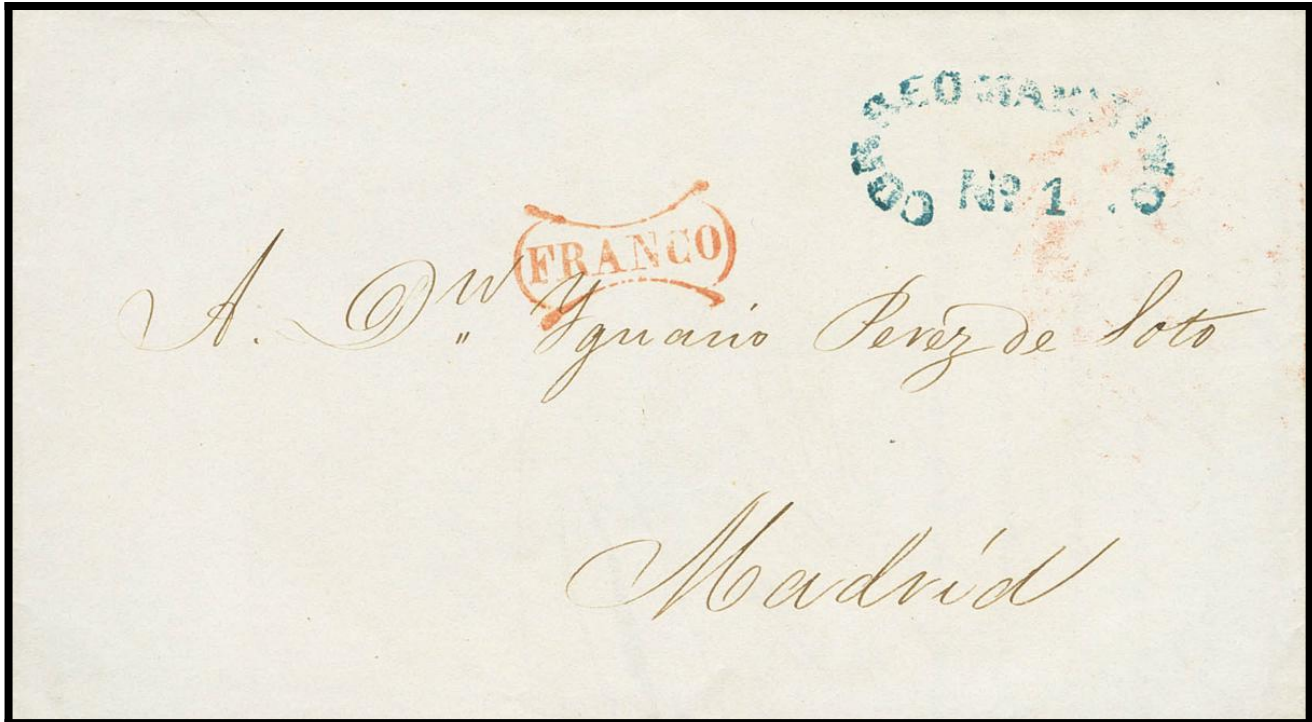 CORREO MARITIMO.
Nº 1
FRANCO
A. Dn Ygnacio Perez de Soto
Madrid